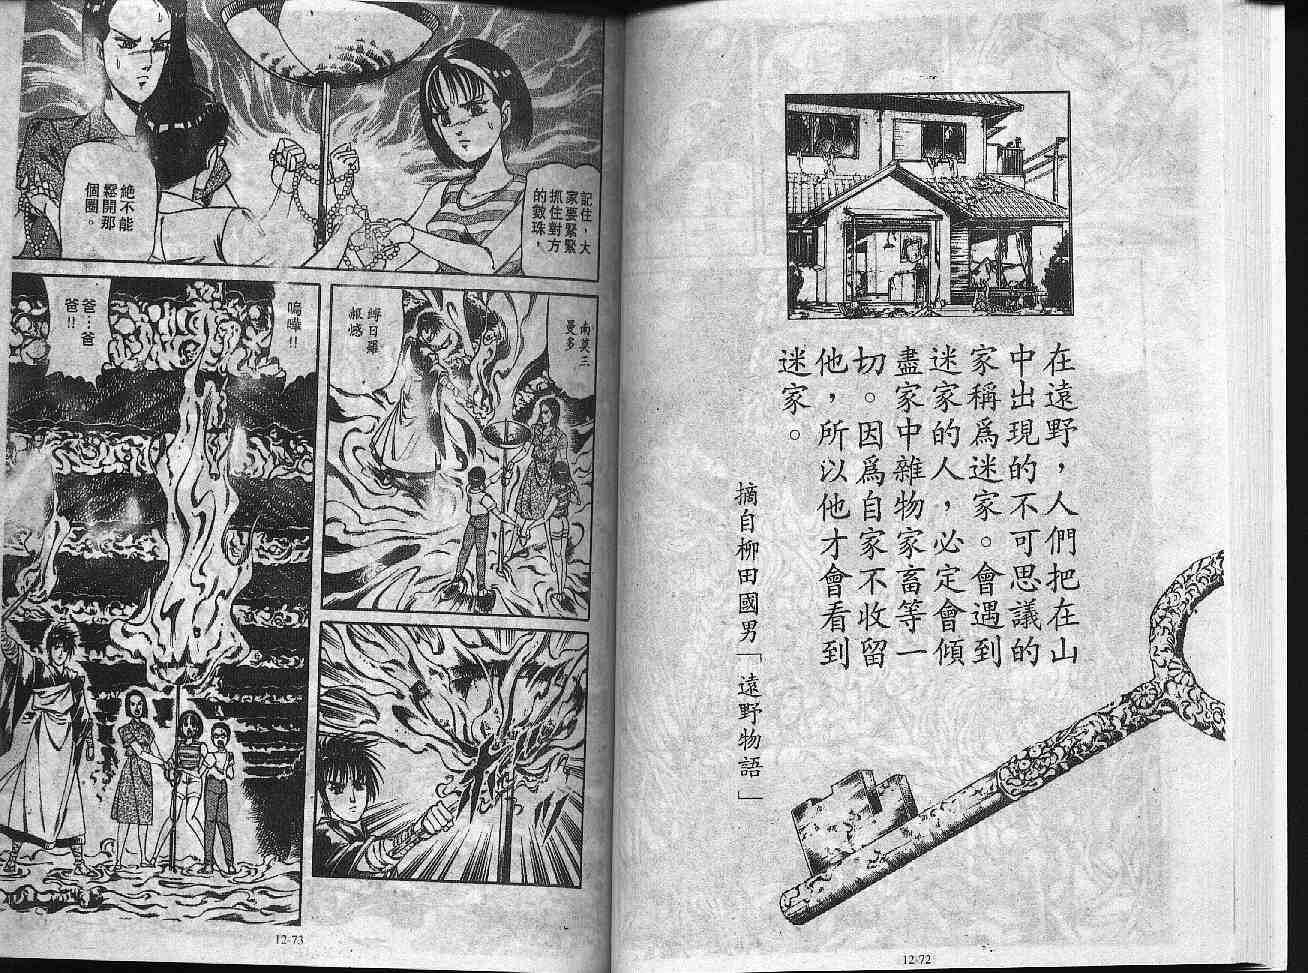 在遠野，人們把在山
中出現的不可思議的
家稱爲迷家。會遇到
迷家的人，必定會傾
盡家中雜物家畜等一
切。因爲自家不收留
他，所以他才會看到
迷家。
摘自柳田國男「遠野物語」
12-72
記住，大
家要緊緊
抓住對方
的數珠，
絕不能
鬆開那
個圈。
南莫三
曼多
縛日羅
赧憾
嗚嘩!!
爸…爸
爸!!
12-73